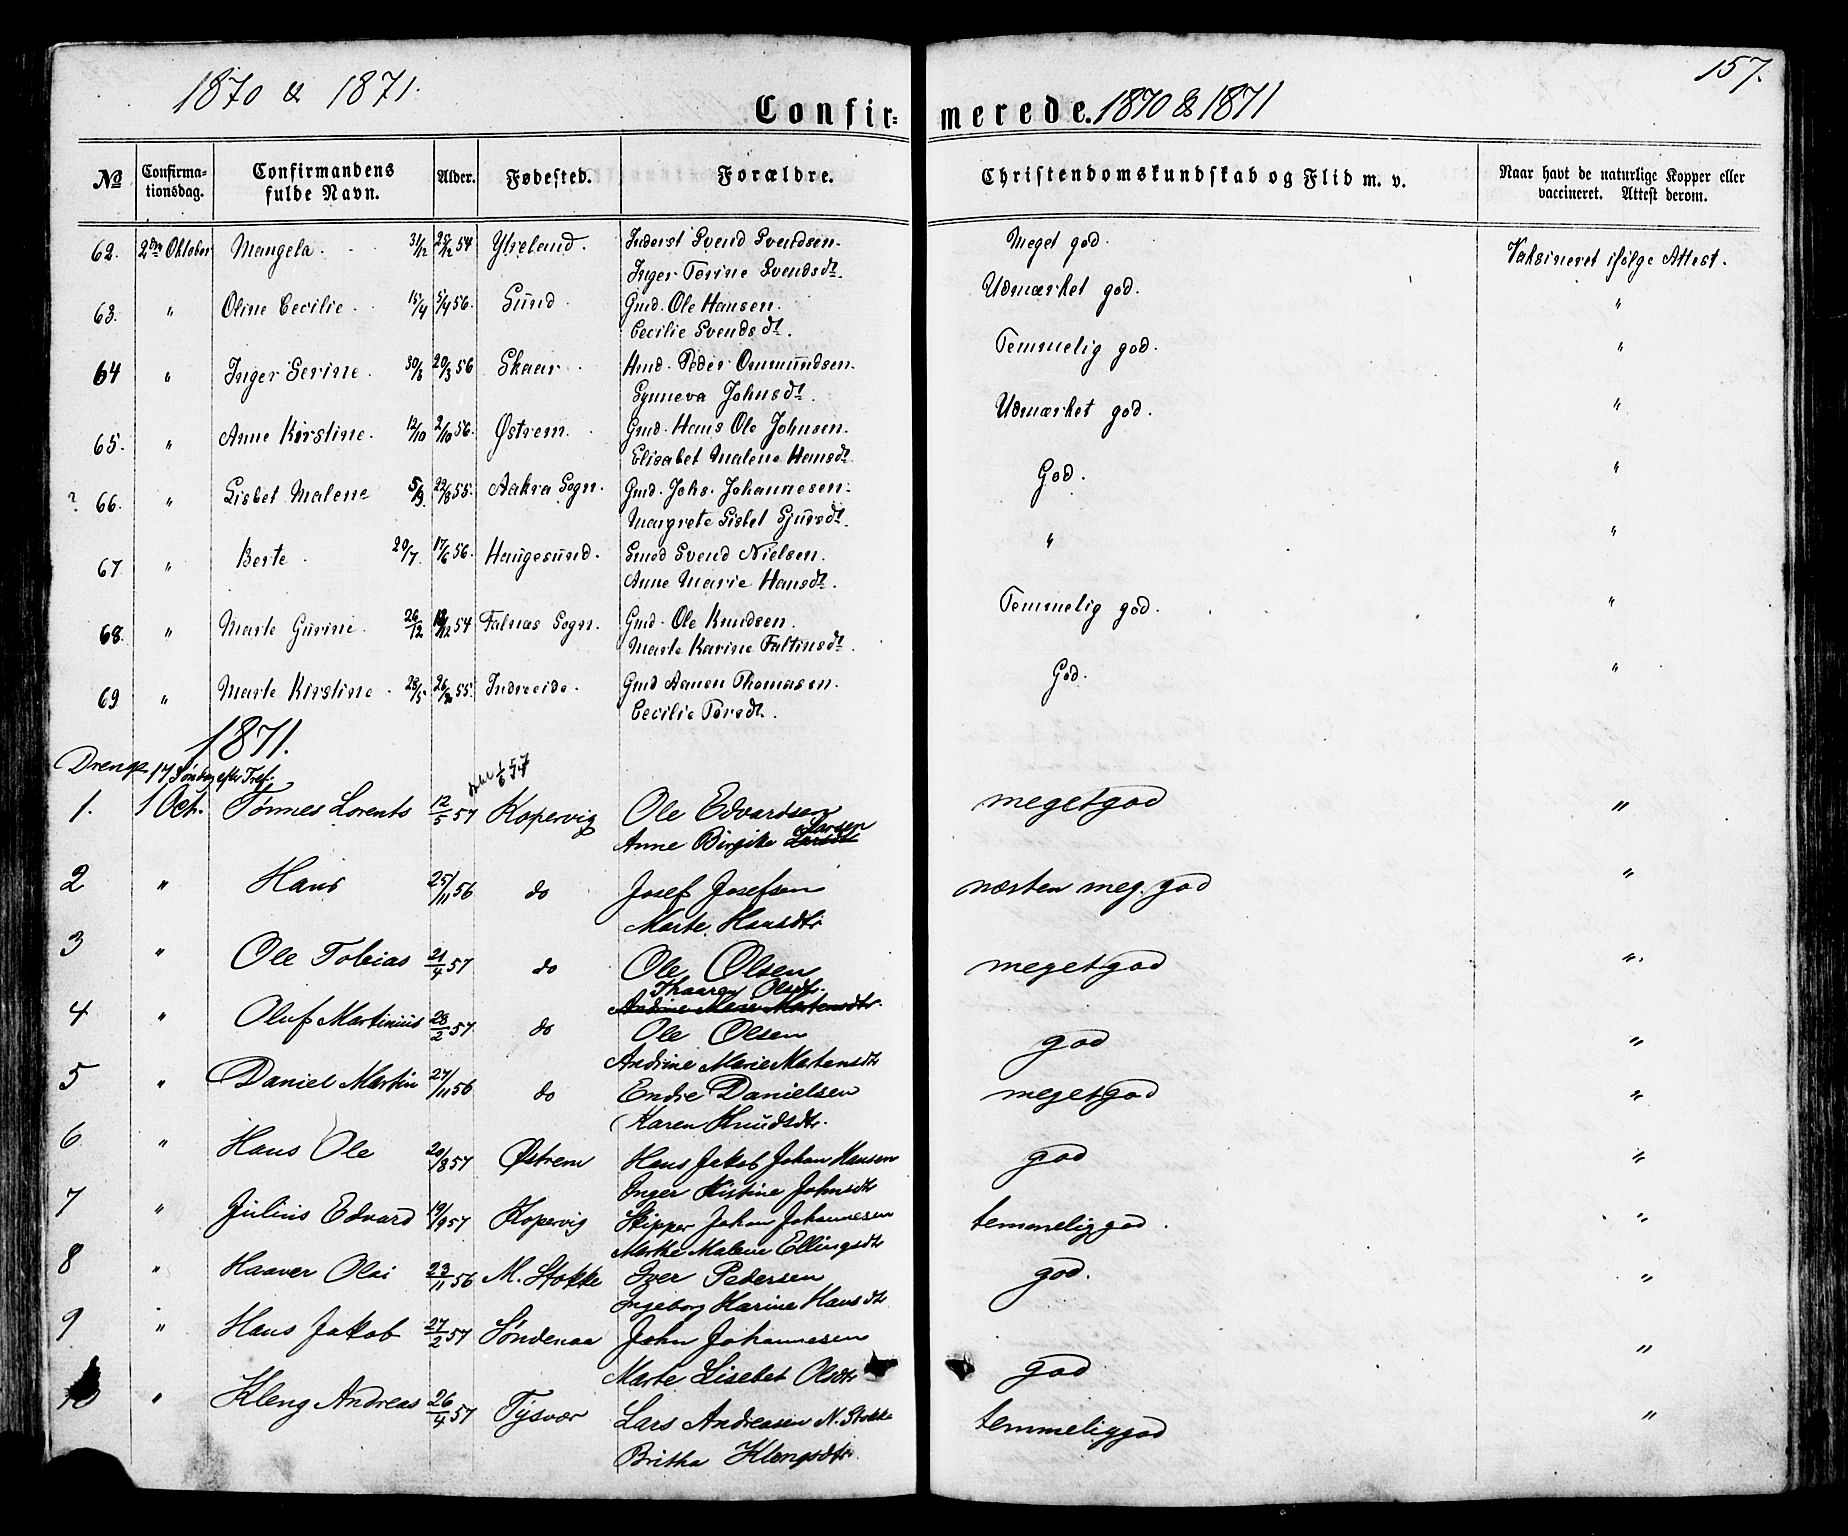 1870 & 1871.
157.
Confir= merede. 1870 & 1871
No Confirma-tionsdag. Confirmandens fulde Navn. Alder. Fødested. Forældre. Christendomskundskab og Flid m. v. Naar havt de naturlige Kopper eller vaccineret. Attest derom.
62. 2den Oktober Mangela. 31/12 54 Ytreland. Inderst Svend Svendsen. Meget god. Vaksineret ifølge Attest.
Inger Torine Svendsdt.
63. " Oline Cecilie. 15/4 5/4 56. Sund. Gmd. Ole Hansen. Udmærket god. "
Cecilie Svendsdt.
64 " Inger Serine. 20/3 56 Skaar. Hmd. Peder Ommundsen. Temmelig god. "
Synneva Johnsdt.
65. " Anne Kirstine. 12/10 2/10 56. Østrem. Gmd. Hans Ole Johnsen. Udmærket god. "
Elisabet Malene Hansdt.
? 66. " Lisbet Malene 5/9. 22/8 55. Aakra Sogn. Gmd. Johs. Johannesen. God. "
Margrete Lisbet Sjursdt.
67 " Berte. 20/7. 17/6 56. Haugesund. Smed Svend Nielsen. " "
Anne Marie Hansdt.
68. " Marte Gurine. 26/12 54 Falnæs Sogn. Gmd. Ole Knudsen. Temmelig god. "
Marte Karine Faltinsdt.
69 " Marte Kirstine. 28/5 55. Indreeide. Gmd Aanen Thomasen. God. "
Cecilie Torsdt.
1871.
Drenge 17 Søndag efter Tref.
1. 1 Oct. Tønnes Lorents 12/5 57 Kopervig Ole Edvardsen megetgod "
Anne Birgite Larsen
2 " Hans 25/11 56 do Josef Josefsen næsten meg. god "
Marte Hansdtr
3 " Ole Tobias 21/4 57 do Ole Olsen megetgod "
Thaaren Olsdtr.
Andrine Marie Martensdtr.
4 " Oluf Martinius 28/2 57 do Ole Olsen god "
Andrine Marie Martensdtr
5 " Daniel Martin 27/11 56 do Endre Danielsen megetgod "
Karen Knudsdtr.
6 " Hans Ole 20/8 57 Østrem Hans Jakob Johan Hansen god "
Inger Kistine Johnsdtr
7 " Julius Edvard 19/9 57 Kopervig Skipper Johan Johannesen temmeliggod. "
Marthe Malene Ellingsdtr
8 " Haaver Olai 23/11 56 M. Stokke Iver Pedersen god. "
Ingeborg Karine Hansdtr
9 " Hans Jakob 27/2 57 Søndenaa John Johannesen god "
Marte Lisebet Olsdtr
10 " Kleng Andreas 26/4 57 Tysvær Lars Andreasen N. Stokke temmeliggod "
Britha Klengsdtr.